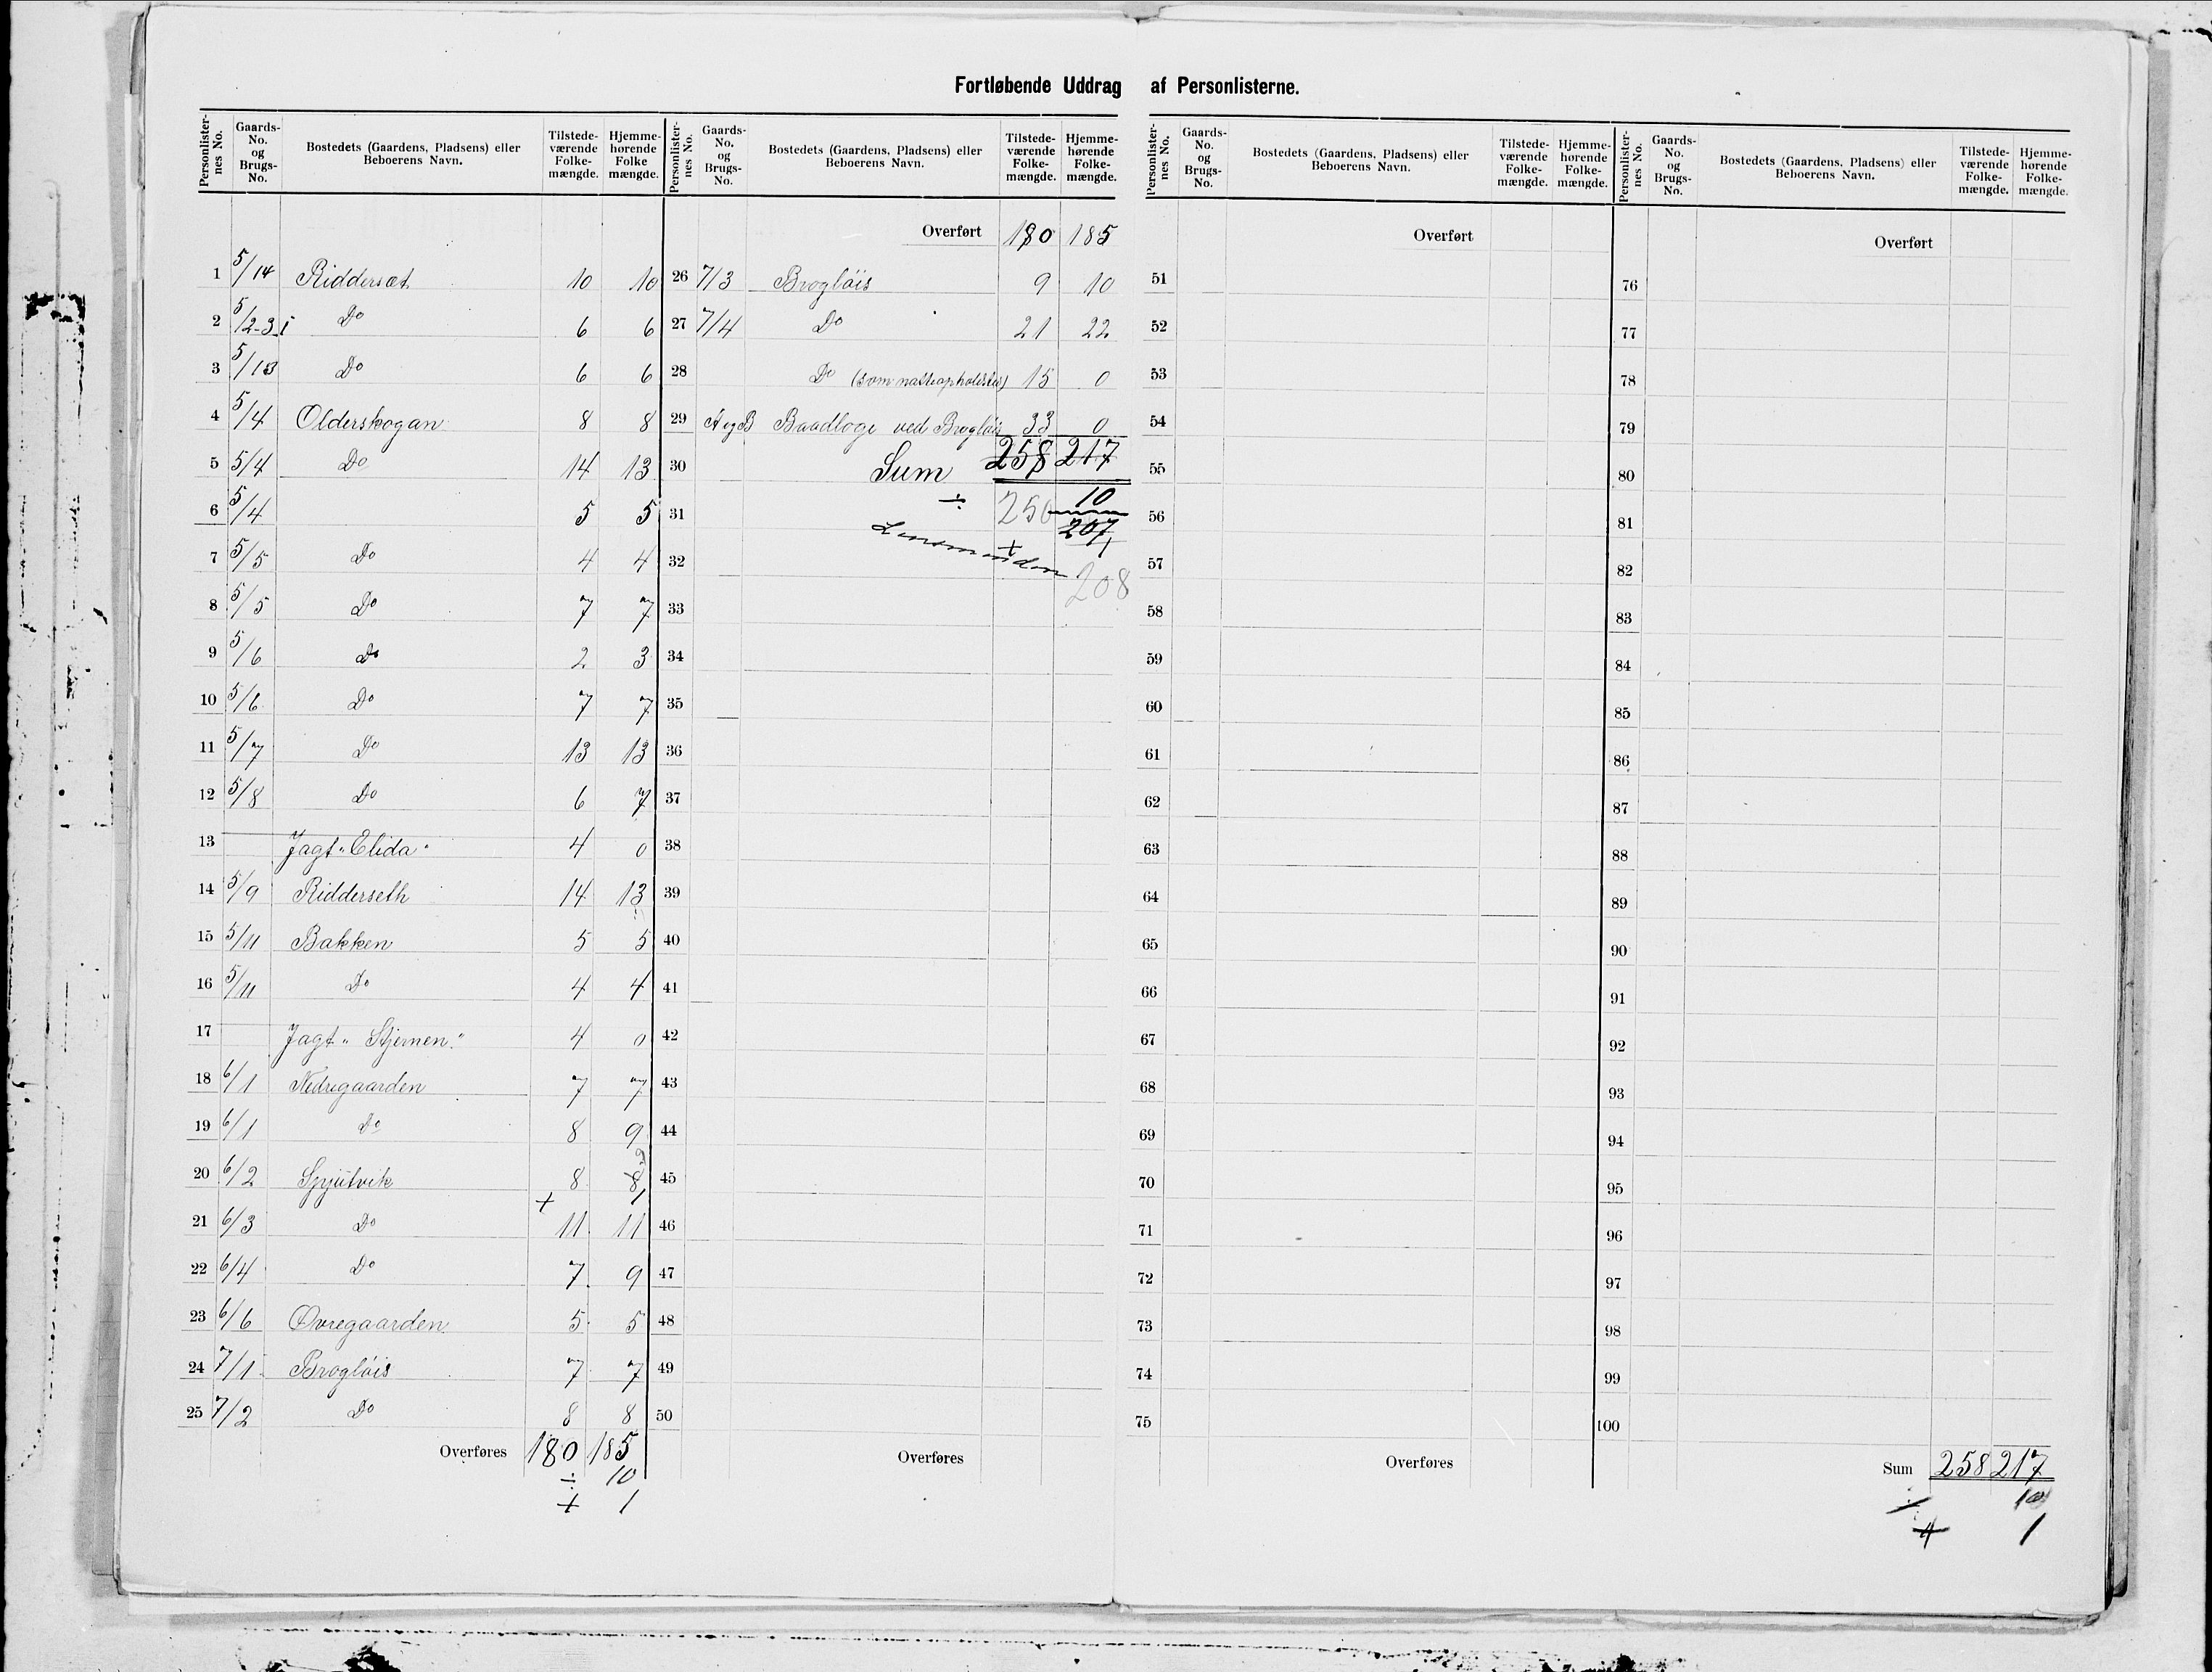 Fortløbende Uddrag af Personlisterne.
Personlister-nes No. Gaards-No. og Brugs-No. Bostedets (Gaardens, Pladsens) eller Beboerens Navn. Tilstede-værende Folke-mængde. Hjemme-hørende Folke mængde.
1 5/14 Riddersæt 10 10
2 5/2-3 i Do 6 6
3 5/13 Do 6 6
4 5/4 Olderskogan 8 8
5 5/4 Do 14 13
6 5/4 5 5
7 5/5 Do 4 4
8 5/5 Do 7 7
9 5/6 Do 2 3
10 5/6 Do 7 7
11 5/7 Do 13 13
12 5/8 Do 6 7
13 Jagt "Elida" 4 0
14 5/9 Ridderseth 14 13
15 5/11 Bakken 5 5
16 5/11 Do 4 4
17 Jagt "Stjernen" 4 0
18 6/1 Nedregaarden 7 7
19 6/1 Do 8 9
20 6/2 Spjutvik 8 8
+ 1
21 6/3 Do 11 11
22 6/4 Do 7 9
23 6/6 Øvregaarden 5 5
24 7/1 Brogløis 7 7
25 7/2 Do 8 8
Overføres 180 185
÷ 10
+ 1
Personlister-nes No. Gaards-No. og Brugs-No. Bostedets (Gaardens, Pladsens) eller Beboerens Navn. Tilstede-værende Folke-mængde. Hjemme-hørende Folke-mængde.
Overført 180 185
26 7/3 Brogløis 9 10
27 7/4 Do 21 22
28 Do (som 15 0
29 A og B Baadloge ved Brogløis 33 0
30 Sum 258 217
31 ÷ 250 10
207
32 Lensmanden + 1
208
33
34
35
36
37
38
39
40
41
42
43
44
45
46
47
48
49
50
Overføres
Personlister-nes No. Gaards-No. og Brugs-No. Bostedets (Gaardens, Pladsens) eller Beboerens Navn. Tilstede-værende Folke-mængde. Hjemme-hørende Folke-mængde.
Overført
51
52
53
54
55
56
57
58
59
60
61
62
63
64
65
66
67
68
69
70
71
72
73
74
75
Overføres
Personlister-nes No. Gaards-No. og Brugs-No. Bostedets (Gaardens, Pladsens) eller Beboerens Navn. Tilstede-værende Folke-mængde. Hjemme-hørende Folke-mængde.
Overført
76
77
78
79
80
81
82
83
84
85
86
87
88
89
90
91
92
93
94
95
96
97
98
99
100
Sum 258 217
÷ 10
+ 1